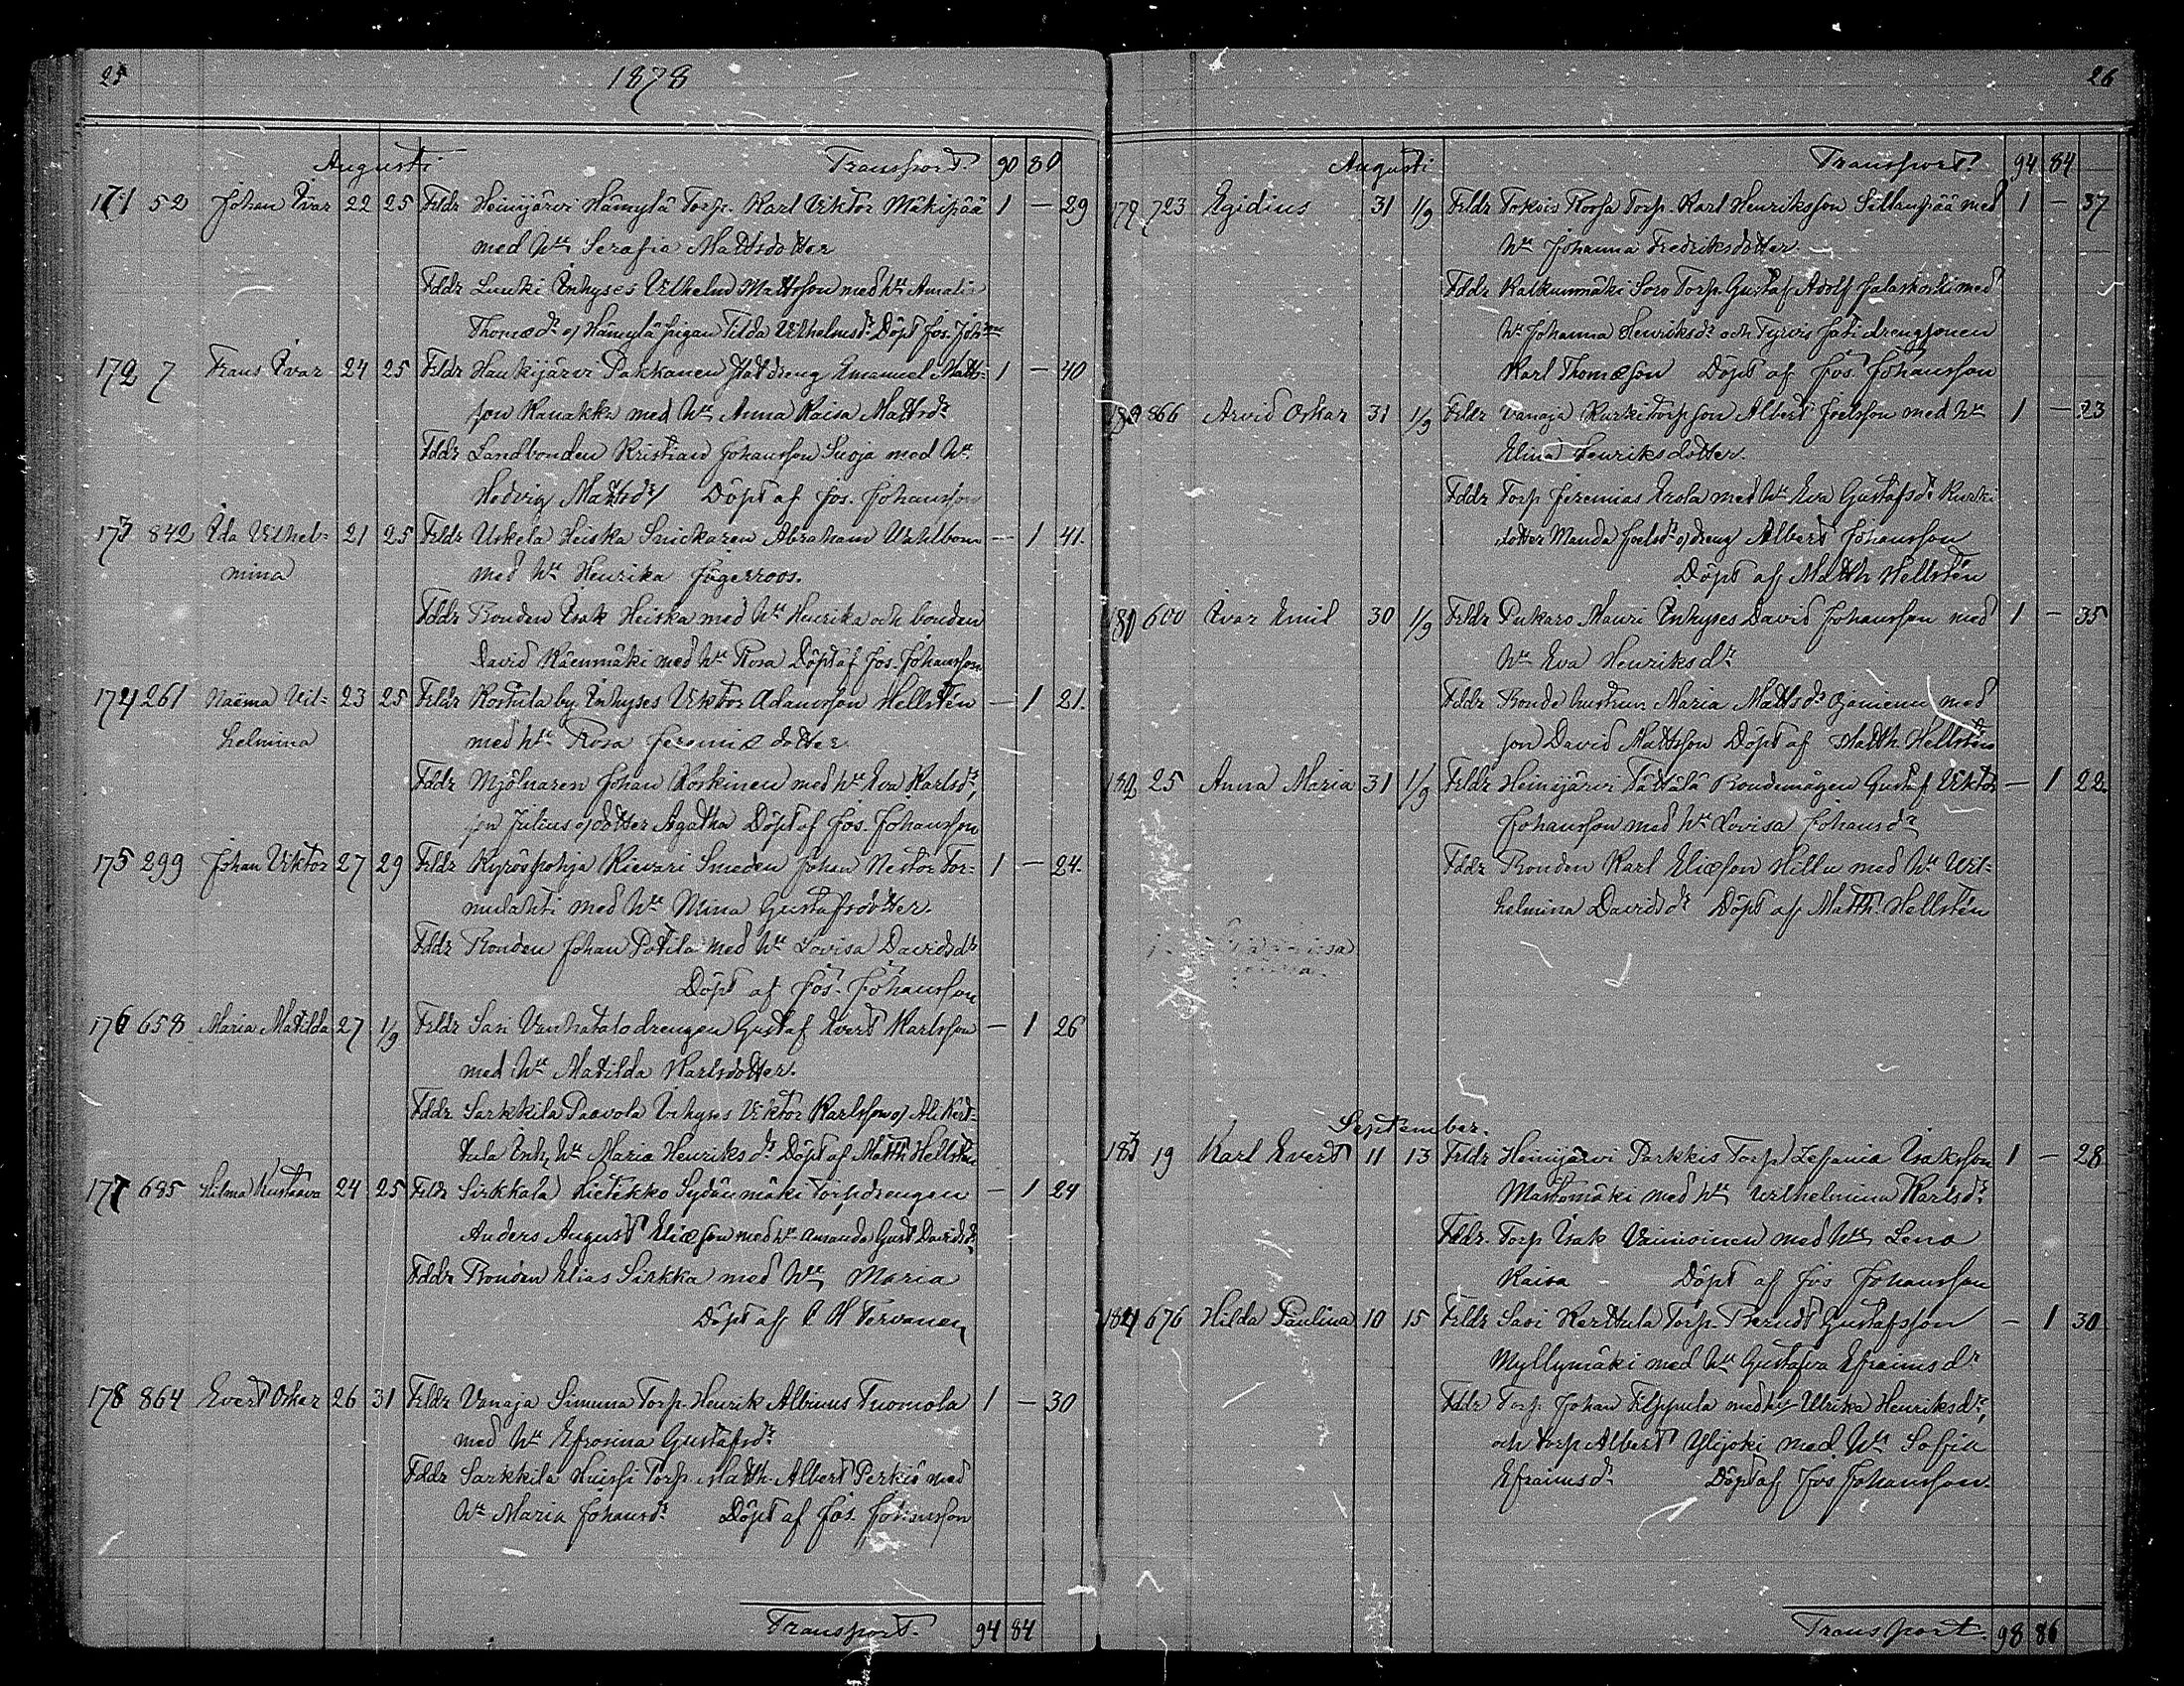 25 1878
Augusti Transport 90 80
171 52 Johan Ivar 22 25 Frldr Heinijärvi Hämylä Torp. Karl Viktor Mäkipää 1 — 29
med Hu Serafia Mattsdotter
Fddr Luuki Inhyses Vilhelm Mattsson med Hu Amalia
Thomædr o/ Hämylä pigan Tilda Vilhelmsdr Döpt Jos. Johansson
172 7 Frans Ivar 24 25 Frldr Haukijärvi Pakkanen Statdreng Emanuel Matts- 1 — 40
son Kanakka med Hu Anna Kaisa Mattsdr
Fddr Landbonden Kristian Johansson Suoja med Hu
Hedvig Mattsdr Döpt af Jos. Johansson
173 842 Ida Vilhel- 21 25 Frldr Urkela Heiska Snickaren Abraham — 1 41.
mina med Hu Henrika Jägerroos.
Fddr Bonden Isak Heiska med Hu Henrika och bonden
David Räenmäki med Hu Rosa Döpt af Jos. Johansson
174 261 Naëma Vil- 23 25 Frldr Kostula by Inhyses Viktor Adamsson Hellstén — 1 21.
helmina med Hu Rosa Jeremiædotter
Fddr Mjölnaren Johan Koskinen med Hu Eva Karlsdr,
son Julius o/ dotter Agatha Döpt af Jos. Johansson
175 299 Johan Viktor 27 29 Frldr Kyröspohja Kievari Smeden Johan Nestor Tor- 1 — 24.
nulahti med Hu Mina Gustafsdotter.
Fddr Bonden Johan Potila med Hu Lovisa Davidsdr
Döpt af Jos. Johansson
176 658 Maria Matilda 27 1/9 Frldr Sasi Vanhatalo drengen Gustaf Evert Karlsson — 1 26
med Hu Matilda Karlsdotter.
Fddr Sarkkila Paavola Inhyses Viktor Karlsson o/ Ali Kert-
tula Inh. Hu Maria Henriksdr Döpt af Matth Hellstén
177 685 Hilma Kustaava 24 25 Frldr Sirkkala Hietikko Sydänmäki Torpdrengen — 1 24
Anders August Eliæson med Hu Amanda Gust Davidsdr
Fddr Bonden Elias Sirkka med Hu Maria
Döpt af C H Tervanen
178 864 Evert Oskar 26 31 Frldr Vanaja Simuna Torp. Henrik Albinus Tuomola 1 — 30
med Hu Efrosina Gustafsdr
Fddr Sarkkila Huissi Torp. Matth. Albert Perkiö med
Hu Maria Johansdr Döpt af Jos. Johansson
Transport. 94 84
26
Augusti Transport. 94 84
179 723 Egidius 31 1/9 Frldr Tokois Roosa Torp. Karl Henriksson Sillanpää med 1 — 37
Hu Johanna Fredriksdotter
Fddr Kalkunmäki Soro Torp. Gustaf Adolf Jalaskoski med
Hu Johanna Henriksdr och Tyrvis Jati drengsonen
Karl Thomæson Döpt af Jos. Johansson
180 866 Arvid Oskar 31 1/9 Frldr Vanaja Kurki Torpson Albert Joelsson med Hu 1 — 23
Elina Henriksdotter.
Fddr Torp Jeremias Erola med Hu Eva Gustafsdr Kurki
dotter Manda Joelsdr o/ dreng Albert Johansson
Döpt af Matth Hellstén
181 600 Ivar Emil 30 1/9 Frldr Pukaro Mauri Inhyses David Johansson med 1 — 35
Hu Eva Henriksdr
Fddr Bonde hustrun Maria Mattsdr Ojaniemi med
son David Mattsson Döpt af Matth. Hellstén
182 25 Anna Maria 31 1/9 Frldr Heinijärvi Tättälä Bondemågen Gustaf Viktor — 1 22.
Johansson med Hu Lovisa Johansdr
Fddr Bonden Karl Eliæson Hillu med Hu Vil-
helmina Davidsdr Döpt af Matth. Hellstén
September.
183 19 Karl Evert 11 13 Frldr Heinijärvi Parkkis Torp Zefania Isaksson 1 — 28
Mastomäki med Hu Vilhelmina Karlsdr
Fddr. Torp Isak Vainoinen med Hu Lena
Kaisa Döpt af Jos Johansson
184 676 Hilda Paulina 10 15 Frldr Sasi Kerttula Torp. Berndt Gustafsson — 1 30
Myllymäki med Hu Gustafva Efraimsdr
Fddr Torp. Johan Filppula med Hu Ulrika Henriksdr,
och Torp Albert Ylijoki med Hu Sofia
Efraimsdr Döpt af Jos Johansson.
Transport. 98 86